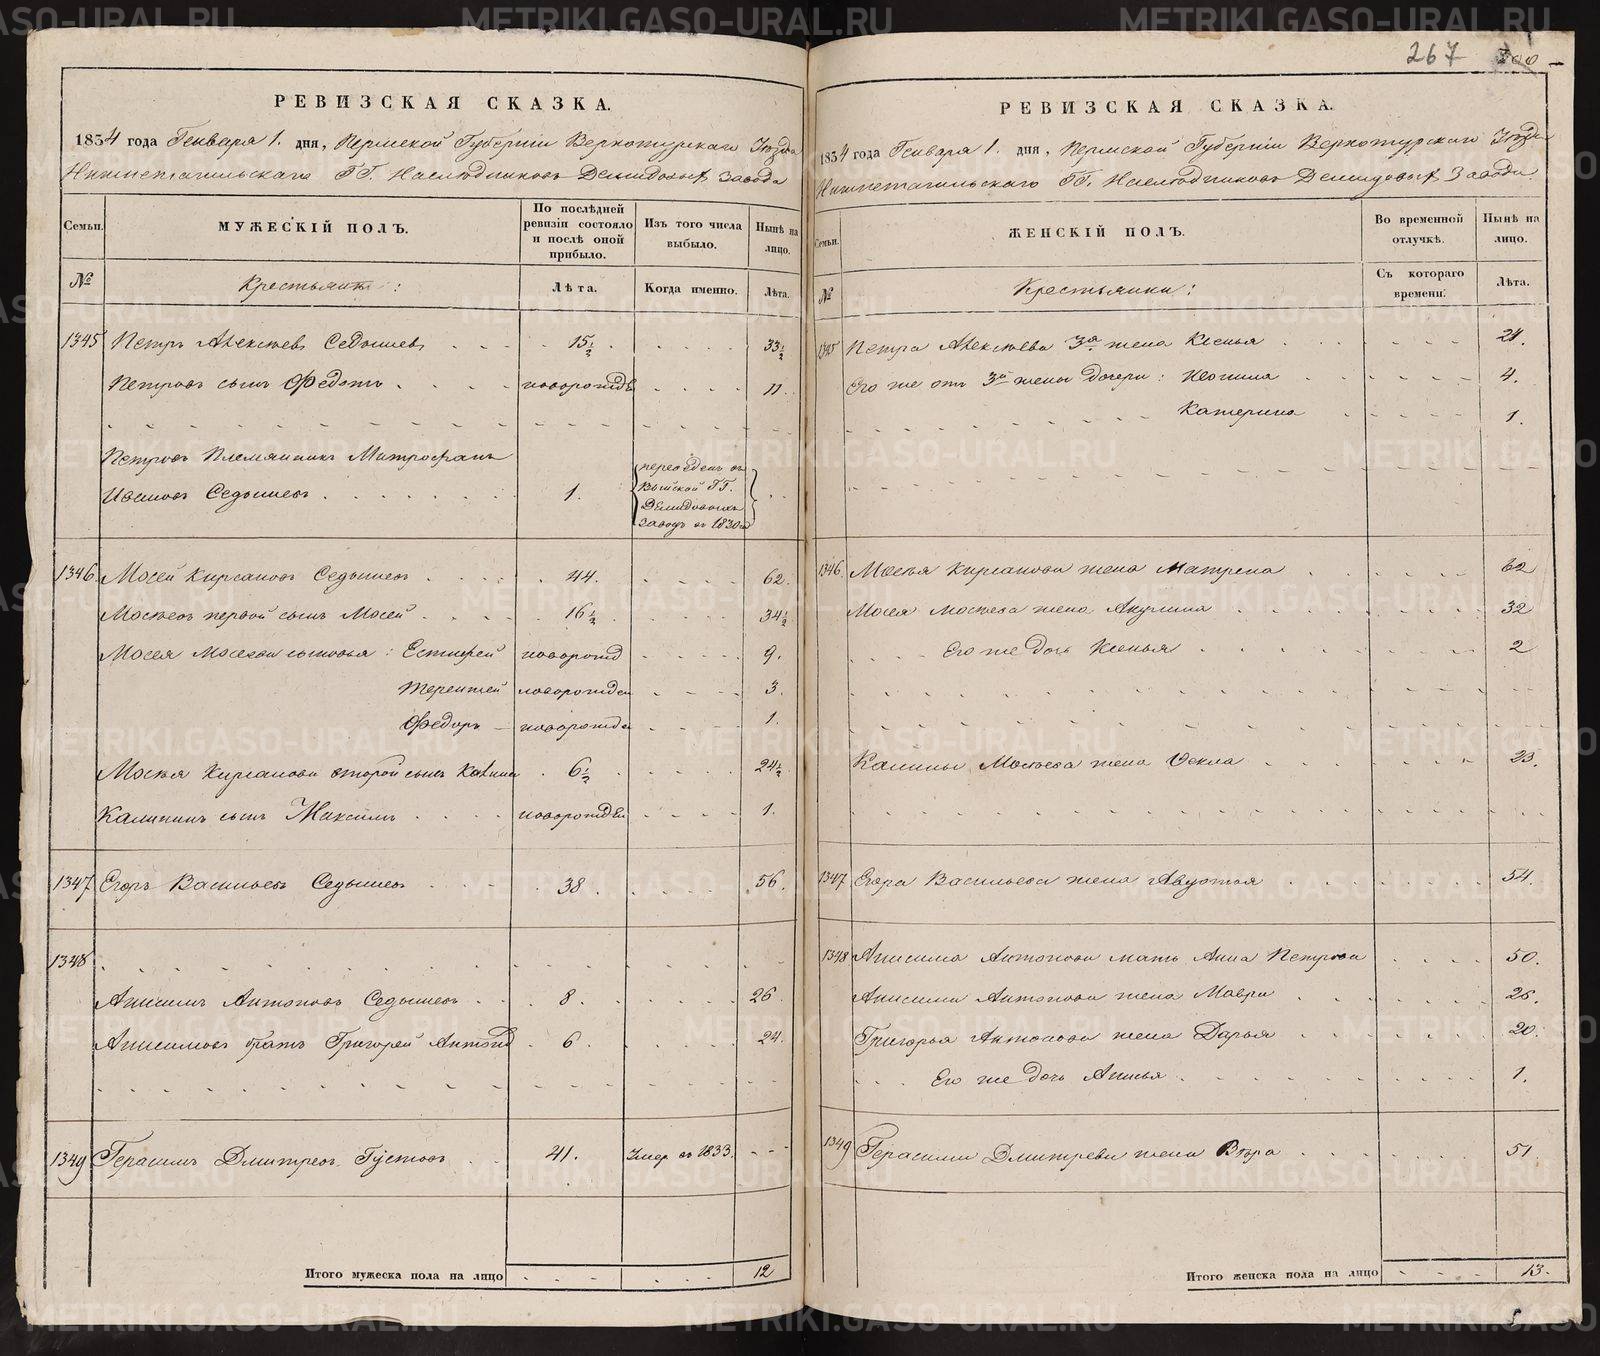 267
РЕВИЗСКАЯ СКАЗКА.
1834 года Генваря 1. дня, Пермской Губерніи Верхотурскаго Уезда
Нижнетагильскаго ГГ. Наследниковъ Демидовыхъ Завода
Семьи.
МУЖЕСКІЙ ПОЛЪ.
По послѣдней ревизіи состояло и послѣ оной прибыло.
Изъ того числа выбыло.
Нынѣ на лицо.
№
Крестьяне:
Лѣта.
Когда именно.
Лѣта.
1345 Петръ Алексѣевъ Седышевъ 15½ 33½
Петровъ сынъ Федотъ новорожд 11.
Петровъ племянникъ Митрофанъ
Ивановъ Седышевъ. 1. переведенъ въ Выйской ГГ. Демидовыхъ заводъ въ 1830м
1346. Мосей Кирсановъ Седышевъ 44. 62.
Мосѣевъ первой сынъ Мосей 16½ 34½
Мосея Мосѣева сыновья: Естифей новорожд 9.
Терентей новорожден 3.
Федоръ новорожде 1.
Мосѣя Кирсанова второй сынъ Калина 6½ 24½
Калининъ сынъ Максимъ новорожден 1.
1347 Егоръ Васильевъ Седышевъ 38. 56.
1348
Анисимъ Антоновъ Седышевъ 8. 26.
Анисимовъ братъ Григорей Антонов 6. 24.
1349 Герасимъ Дмитреев Густовъ 41. Умер въ 1833.
Итого мужеска пола на лицо 12
РЕВИЗСКАЯ СКАЗКА.
1834 года Генваря 1. дня, Пермской Губерніи Верхотурскаго Уезда
Нижнетагильскаго ГГ. Наследниковъ Демидовыхъ Завода.
Семьи.
ЖЕНСКІЙ ПОЛЪ.
Во временной отлучкѣ.
Нынѣ на лицо.
№
Крестьянки:
Съ котораго времени.
Лѣта.
1345 Петра Алексѣева 3а жена Ксенья 21.
Его же отъ 3й жены дочери: Неонила 4.
Катерина 1.
1346. Мосѣя Кирсанова жена Матрена 62
Мосея Мосѣева жена Акулина 32
Его же дочь Ксенья 2
Калины Мосѣева жена Фекла 23.
1347 Егора Васильева жена Авдотья 54.
1348 Анисима Антонова мать Анна Петрова 50.
Анисима Антонова жена Мавра 26.
Григорья Антонова жена Дарья 20.
Его же дочь Анисья 1.
1349 Герасима Дмитрева жена Вѣра 51
Итого женска пола на лицо 13.
METRIKI.GASO-URAL.RU